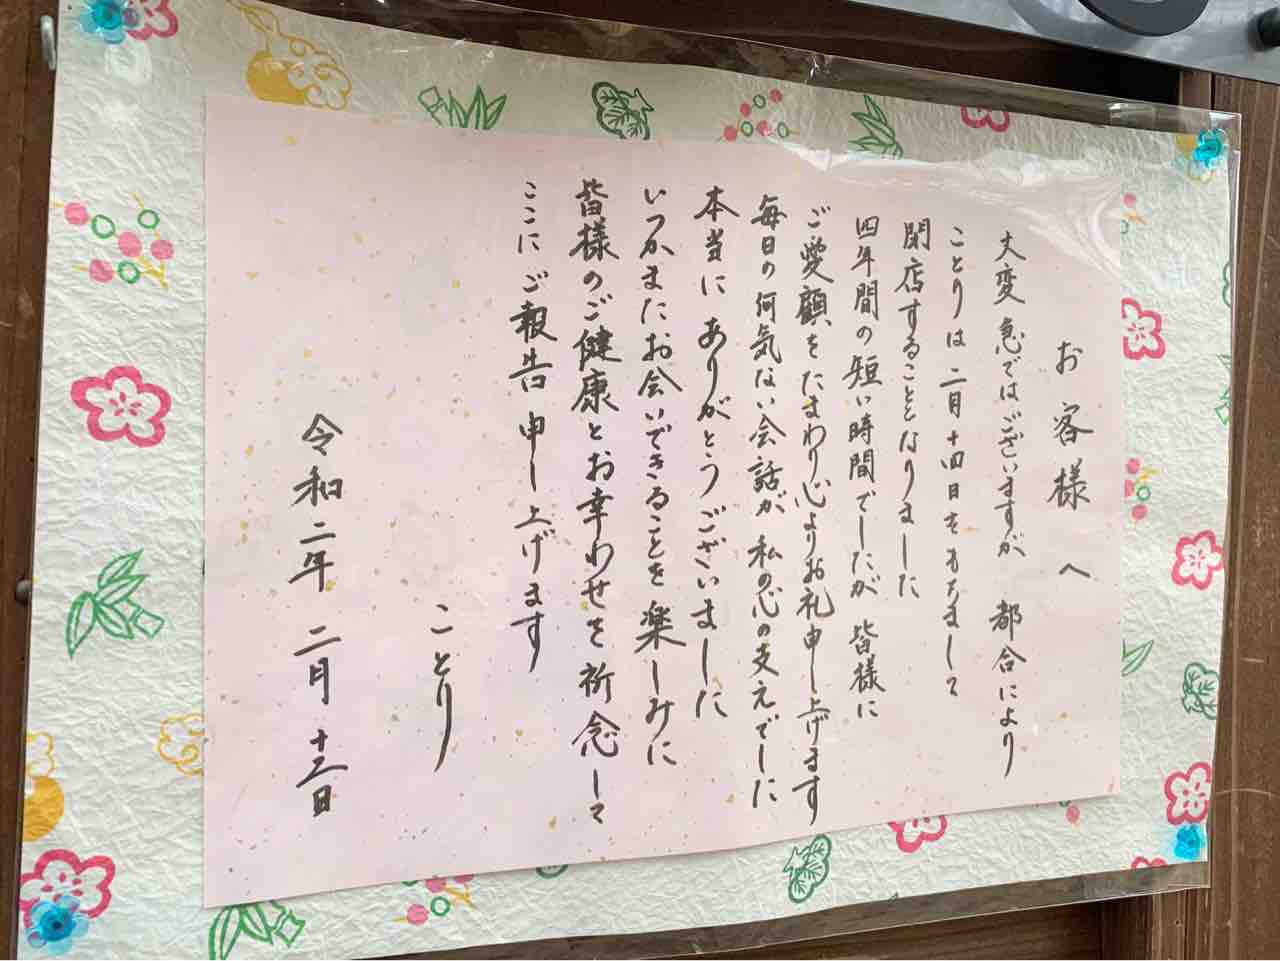 お客様へ
大変急ではございますが 都合により
ことりは 二月十四日をもちまして
閉店することとなりました
四年間の短い時間でしたが 皆様に
ご愛顧をたまわり心よりお礼申し上げます
毎日の何気ない会話が 私の心の支えでした
本当に ありがとうございました
いつかまたお会いできることを楽しみに
皆様のご健康とお幸わせを祈念して
ここに ご報告申し上げます
ことり
令和二年 二月 十五日